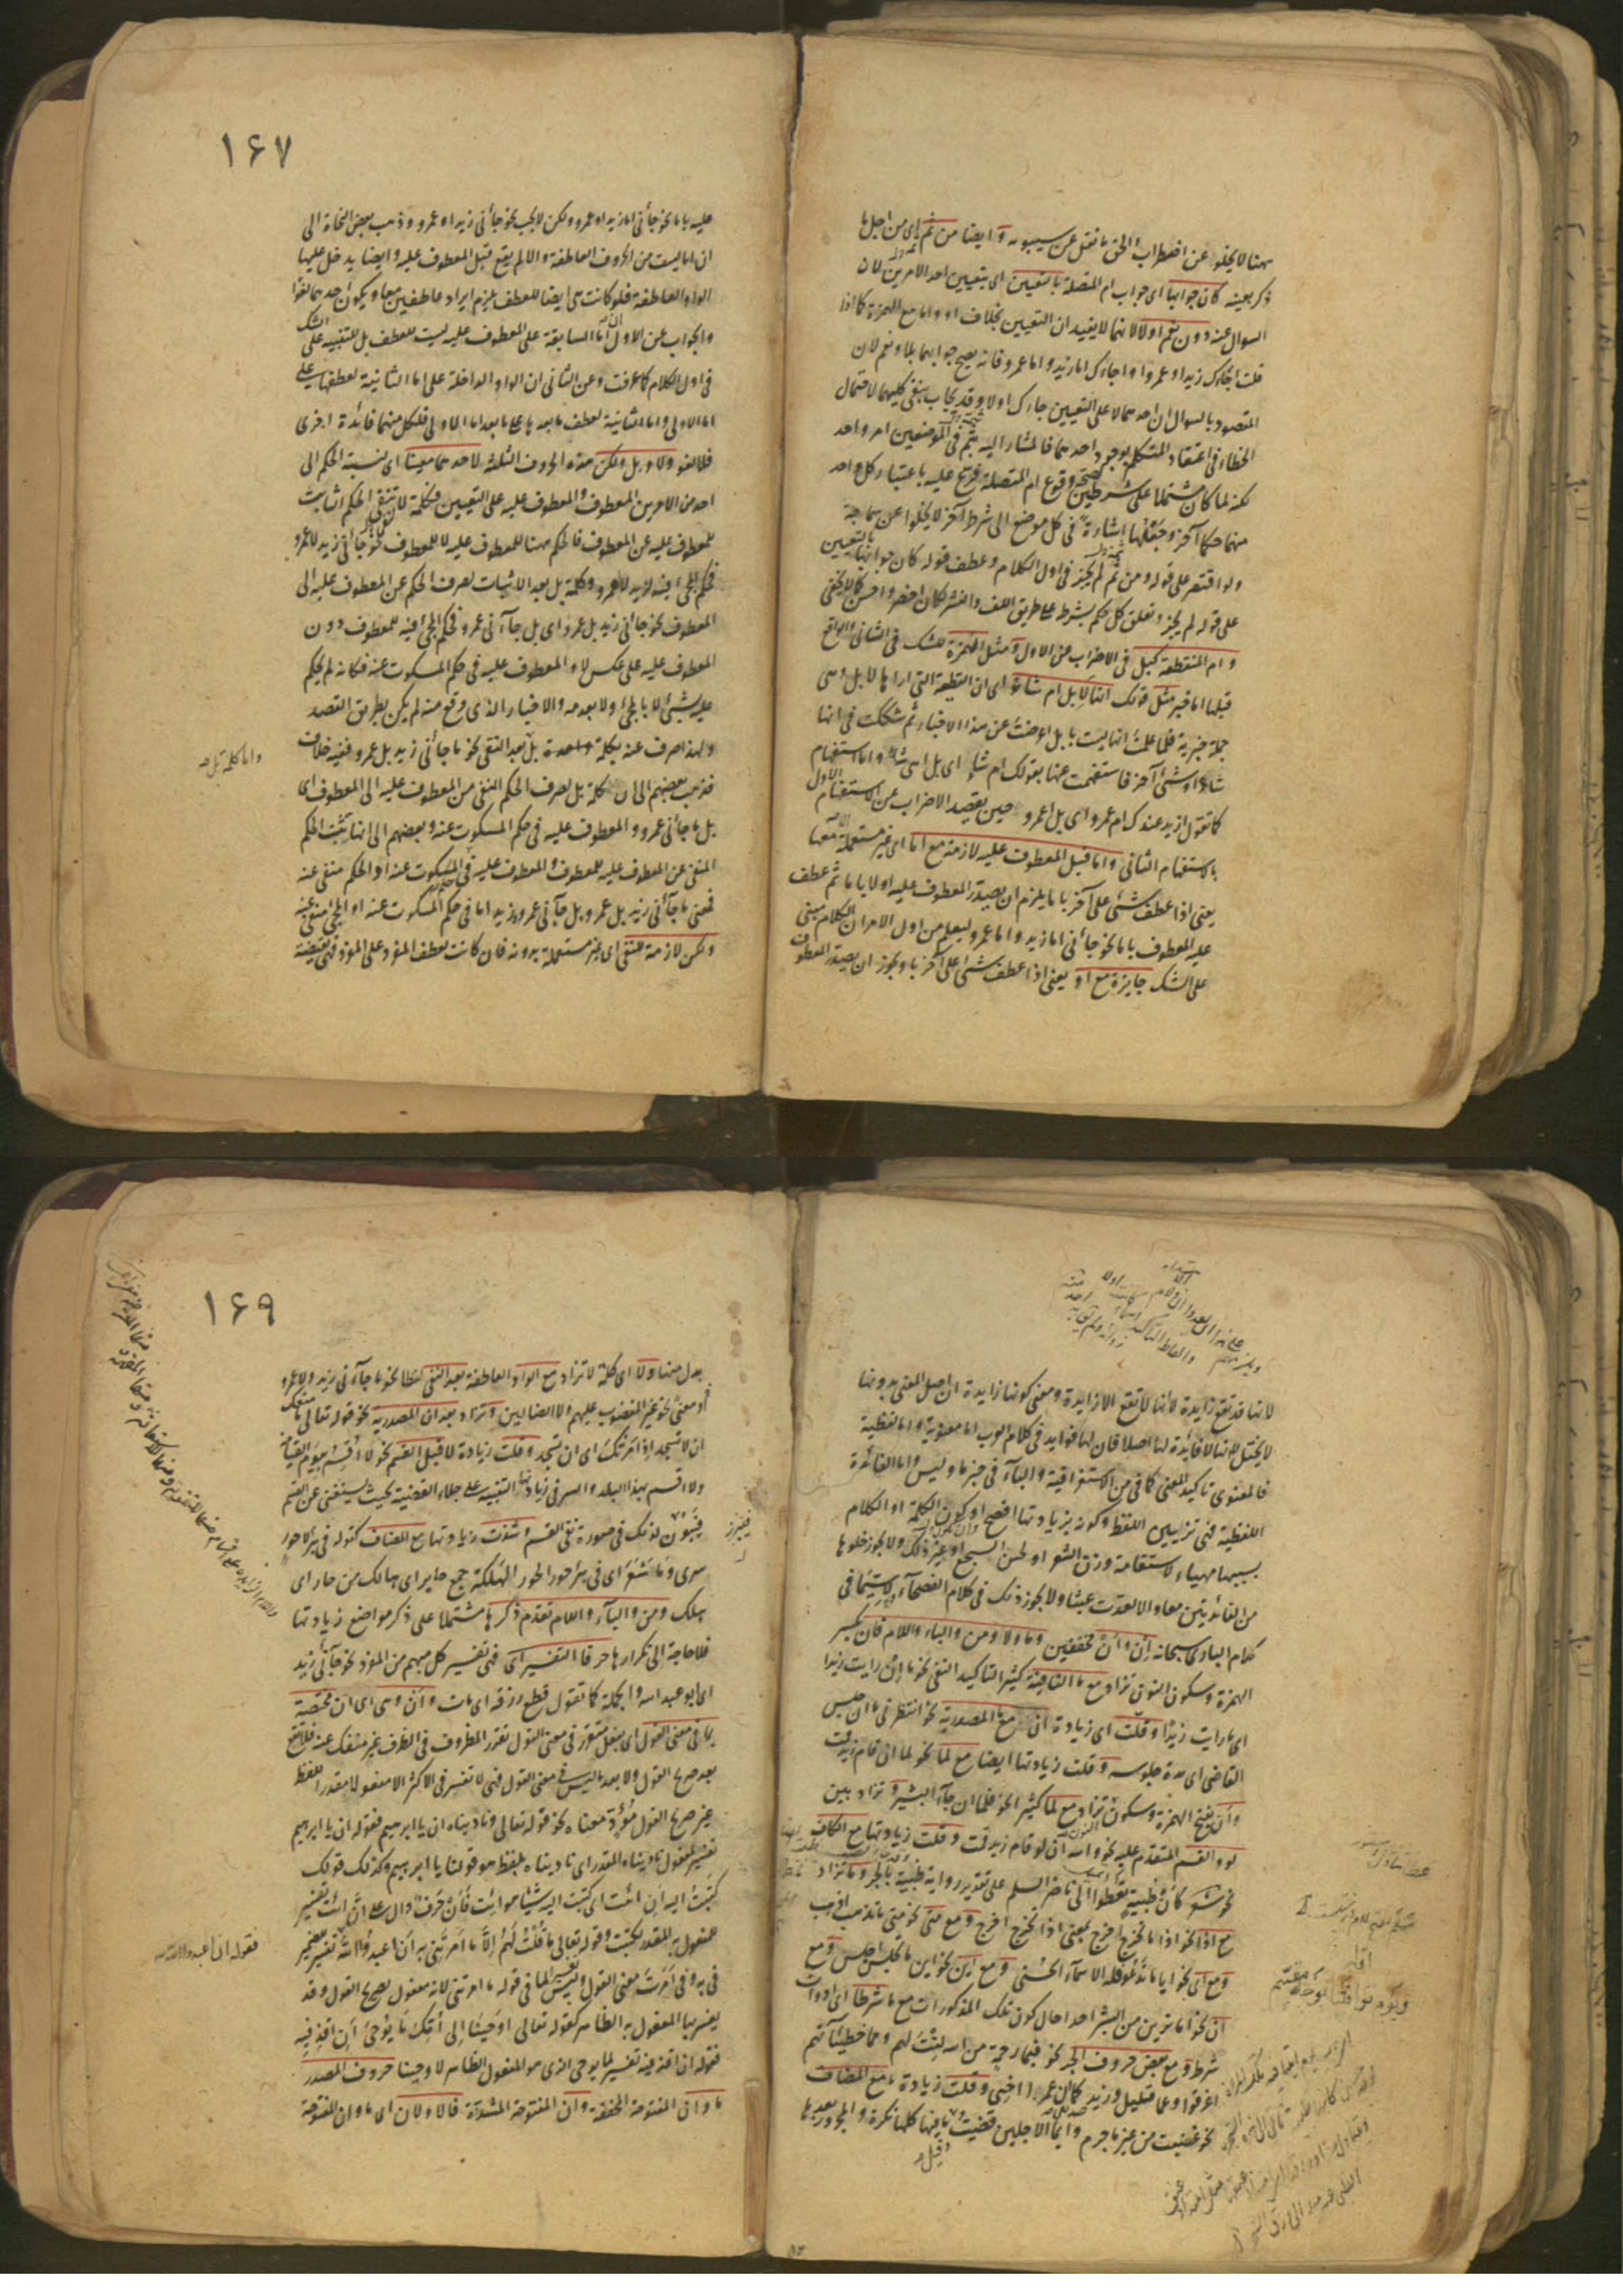 ههنا لا يخلو عن اضطراب والحق ما نقل عن سيبويه وايضا من ثم اى من اجل ما
ذكر بعينه كان جوابها اى جواب ام المتصلة بالتعيين اى بتعيين احد الامرين لان
السوال عنه دون نعم او لا لانهما لا يفيدان التعيين بخلاف او واما مع الهمزة كما اذا
قلت اجاءك زيد او عمرو او اجاءك اما زيد واما عمرو فانه يصح جوابهما بلا ونعم لان
المقصود بالسوال ان احدهما لا على التعيين جاءك او لا وقد يجاب بنفى كليهما لاحتمال
الخطاء فى اعتقاد المتكلم بوجود احدهما فالمشار اليه بثم فى الموضعين امر واحد
لكنه لما كان مشتملا على شرطين لصحة وقوع ام المتصلة فرع عليه باعتبار كل واحد
منهما حكما آخر وجعلها اشارة فى كل موضع الى شرط آخر لا يخلوا عن سماجة
ولو اقتصر على قوله ومن ثم لم يجز فى اول الكلام وعطف قوله كان جوابها بالتعيين
على قوله لم يجز وتعلق كل حكم بشرط على طريق اللف والنشر لكان اخصر واحسن كما لا يخفى
وام المنقطعة كبل فى الاضراب عن الاول ومثل الهمزة للشك فى الثانى والواقع
قبلها اما خبر مثل قولك انها لابل ام شاء اى ان القطيعة التى اراها لابل وهى
جملة خبرية فلما علمت انها ليست بابل اعرضت عن هذا الاخبار ثم شككت فى انها
شاء او شئ آخر فاستفهمت عنها بقولك ام شاء اى بل اهى شاء واما استفهام
كما تقول ازيد عندك ام عمرو اى بل اعمرو حين يقصد الاضراب عن الاستفهام الاول
بالاستفهام الثانى واما قبل المعطوف عليه لازمة مع اما اى غير مستعملة الا معها
يعنى اذا عطف شئ على آخر باما يلزم ان يصدر المعطوف عليه اولا باما ثم عطف
عليه المعطوف باما نحو جاءنى اما زيد واما عمرو ليعلم من اول الامر ان الكلام مبنى
على الشك جايزة مع او يعنى اذا عطف شئ على آخر باو يجوز ان يصدر المعطوف
١٦٧
عليه باما نحو جاءنى اما زيد او عمرو ولكن لا يجب نحو جاءنى زيد او عمرو وذهب بعض النحاة الى
ان اما ليست من الحروف العاطفة والا لم يقع قبل المعطوف عليه وايضا يدخل عليها
الواو العاطفة فلو كانت هى ايضا للعطف يلزم ايراد عاطفين معا ويكون احدهما لغوا
والجواب عن الاول ان اما السابقة على المعطوف عليه ليست للعطف بل للتنبيه على الشك
فى اول الكلام كما عرفت وعن الثانى ان الواو الداخلة على اما الثانية لعطفها على
اما الاولى واما الثانية لعطف ما بعدها على ما بعد اما الاولى فلكل منهما فائدة اخرى
فلا لغو ولا وبل ولكن هذه الحروف الثلثة لاحدهما معينا اى لنسبة الحكم الى
احد من الامرين المعطوف والمعطوف عليه على التعيين فكلمة لا تنفى الحكم الثابت
للمعطوف عليه عن المعطوف فالحكم ههنا للمعطوف عليه لا للمعطوف نحو جاءنى زيد لا عمرو
فحكم المجئ فيه لزيد لا عمرو وكلمة بل بعد الاثبات لصرف الحكم عن المعطوف عليه الى
المعطوف نحو جاءنى زيد بل عمرو اى بل جاءنى عمرو فحكم المجئ فيه للمعطوف دون
المعطوف عليه على عكس لا والمعطوف عليه فى حكم المسكوت عنه فكانه لم يحكم
عليه بشئ لا بالمجئ ولا بعدمه والاخبار الذى وقع منه لم يكن بطريق القصد
ولهذا صرف عنه بكلمة بل بعد النفى نحو ما جاءنى زيد بل عمرو ففيه خلاف
واما كلمة بل صح
فذهب بعضهم الى ان كلمة بل لصرف الحكم المنفى من المعطوف عليه الى المعطوف اى
بل ما جاءنى عمرو والمعطوف عليه فى حكم المسكوت عنه وبعضهم الى انها تثبت الحكم
المنفى عن المعطوف عليه للمعطوف والمعطوف عليه فى حكم المسكوت عنه او الحكم منفى عنه
فمعنى ما جاءنى زيد بل عمرو بل جاءنى عمرو وزيد اما فى حكم المسكوت عنه او المجئ منفى عنه
ولكن لازمة للنفى اى غير مستعملة بدونه فان كانت لعطف المفرد على المفرد فهى نقيضة
لانها قد تقع زايدة لا انها لا تقع الا زايدة ومعنى كونها زايدة ان اصل المعنى بدونها
لا يختل لا انها لا فائدة لها اصلا فان لها فوايد فى كلام العرب اما معنوية واما لفظية
فالمعنوى تاكيد المعنى كما فى من الاستغراقية والباء فى خبر ما وليس واما الفائدة
اللفظية فهى تزيين اللفظ وكونه بزيادتها افصح او كون الكلمة او الكلام
بسببها مهياء لاستقامة وزن الشعر او لحسن السجع او غير ذلك ولا يجوز خلوها
من الفائدتين معا والا لعدت عبثا ولا يجوز ذلك فى كلام الفصحاء ولا سيما فى
كلام البارى سبحانه ان وان مخففتين وما ولا ومن والباء واللام فان بكسر
الهمزة وسكون النون تزاد مع ما النافية كثيرا لتاكيد النفى نحو ما ان رايت زيدا
اى ما رايت زيدا وقلت اى زيادة ان مع ما المصدرية نحو انتظرنى ما ان جلس
القاضى اى مدة جلوسه وقلت زيادتها ايضا مع لما نحو لما ان قام زيد قمت
وان بفتح الهمزة وسكون النون تزاد مع لما كثيرا نحو فلما ان جاء البشير وتزاد بين
لو والقسم المتقدم عليه نحو والله ان لو قام زيد قمت وقلت زيادتها مع الكاف
نحو شعر كأن ظبية تعطوا الى ناضر السلم على تقدير رواية ظبية بالجر وما تزاد
مع اذا نحو اذا ما تخرج اخرج بمعنى اذا تخرج اخرج ومع متى نحو متى ما تذهب اذهب
ومع اى نحو ايا ما تدعو فله الاسماء الحسنى ومع اين نحو اين ما تجلس اجلس ومع
ان نحو اما ترين من البشر احدا حال كون تلك المذكورات مع ما شرطا اى ادوات
شرط ومع بعض حروف الجر نحو فبما رحمة من الله لنت لهم ومما خطيئاتهم
اغرقوا وعما قليل وزيد كما ان عمروا اخى وقلت زيادة ما مع المضاف
نحو غضبت من غير ما جرم وايما الاجلين قضيت وقيل ما فيها كلها نكرة والمجرور بعدها
١٦٩
بدل منها ولا اى كلمة لا تزاد مع الواو العاطفة بعد النفى لفظا نحو ما جاءنى زيد ولا عمرو
او معنى نحو غير المغضوب عليهم ولا الضالين وتزاد بعد ان المصدرية نحو قوله تعالى ما منعك
ان لا تسجد اذ امرتك اى ان تسجد وقلت زيادة لا قبل القسم نحو لا اقسم بيوم القيامة
ولا اقسم بهذا البلد والسر فى زيادتها التنبيه على جلاء القضية بحيث يستغنى عن القسم
فيبرز لذلك فى صورة نفى القسم وشذت زيادتها مع المضاف كقوله فى بئر لا حور
سرى وما شعر اى فى بئر حور الحور الهلكة جمع حاير اى هالك من حار اى
هلك ومن والباء واللام تقدم ذكرها مشتملا على ذكر مواضع زيادتها
فلا حاجة الى تكرارها حرفا التفسير اى فهى تفسير كل مبهم من المفرد نحو جاءنى زيد
اى ابو عبد الله والجملة كما تقول قطع رزقه اى مات وان وهى اى ان مختصة
بما فى معنى القول اى بفعل متقرر فى معنى القول تقرر المظروف فى الظرف غير منفك عنه فلا تقع
بعد صريح القول ولا بعد ما ليس فى معنى القول فهى لا تفسر فى الاكثر الا مفعولا مقدرا للفظ
غير صريح القول مؤدى معناه نحو قوله تعالى وناديناه ان يا ابرهيم فقوله ان يا ابرهيم
تفسير لمفعول ناديناه المقدر اى ناديناه بلفظ هو قولنا يا ابرهيم وكذلك قولك
كتبت اليه ان ائت اى كتبت اليه شيئا هو ائت فان حرف دال على ان ائت تفسير
للمفعول به المقدر لكتبت وقوله تعالى ما قلت لهم الا ما امرتنى به ان اعبدوا الله تفسير للضمير
فقوله ان اعبدوا الله
فى به وفى امرت معنى القول وليس تفسيرا لما فى قوله ما امرتنى لانه مفعول لصريح القول وقد
يفسر بها المفعول به الظاهر كقوله تعالى اوحينا الى امك ما يوحى ان اقذفيه
فقوله ان اقذفيه تفسير لما يوحى الذى هو المفعول الظاهر لاوحينا حروف المصدر
ما وان المفتوحة المخففة وان المفتوحة المشددة فالاولان اى ما وان المفتوحة